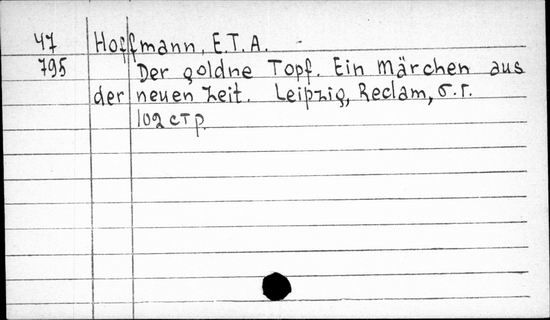 47 Hoffmann, E.T.A.
795 Der goldne Topf. Ein Märchen aus
der neuen Zeit. Leipzig, Reclam, б.г.
102 стр.